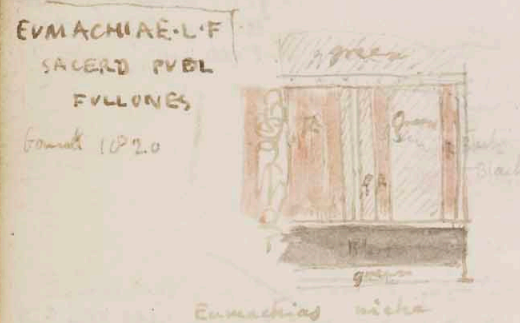 EVMACHIAE·L·F
SACERD PVBL
FVLLONES
green
R
Green
Black
green
Eumachias niche